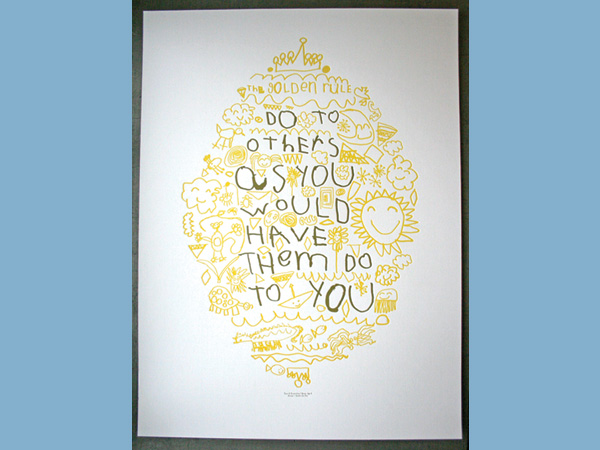 the GOLDEN rule
DO TO
otheRs
as YOU
woULD
HAVE
THem DO
TO YOU